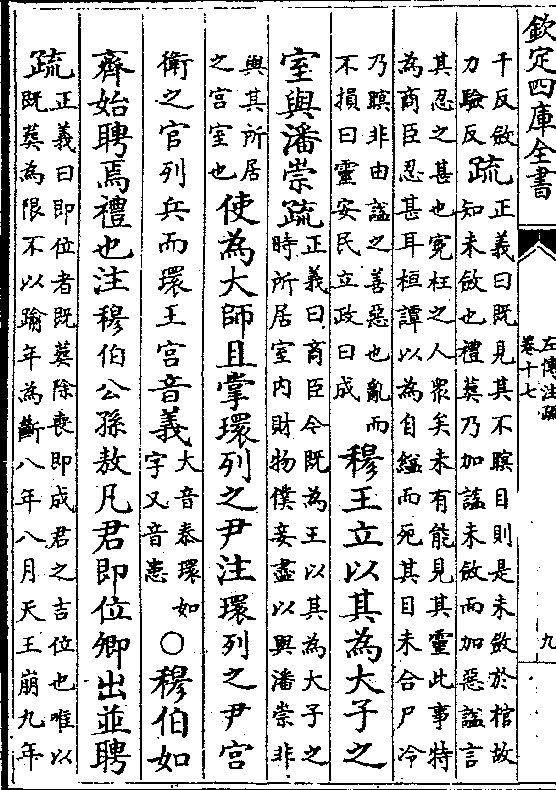 欽定四庫全書
左傳注疏
卷十七
九
千反斂
力驗反
疏
正義曰既見其不瞑目則是未斂於棺故
知未斂也禮葬乃加諡未斂而加惡諡言
其忍之甚也冤枉之人衆矣未有能見其靈此事特
為商臣忍甚耳桓譚以為自縊而死其目未合尸冷
乃瞑非由諡之善惡也亂而
不損曰靈安民立政曰成
穆王立以其為大子之
室與潘崇疏
正義曰商臣今既為王以其為大子之
時所居室内財物僕妾盡以與潘崇非
與其所居
之宫室也
使為大師且掌環列之尹注環列之尹宫
衛之官列兵而環王宫音義
大音泰環如
字又音患
○穆伯如
齊始聘焉禮也注穆伯公孫敖凡君即位卿出並聘
疏
正義曰即位者既葬除喪即成君之吉位也唯以
既葬為限不以踰年為斷八年八月天王崩九年